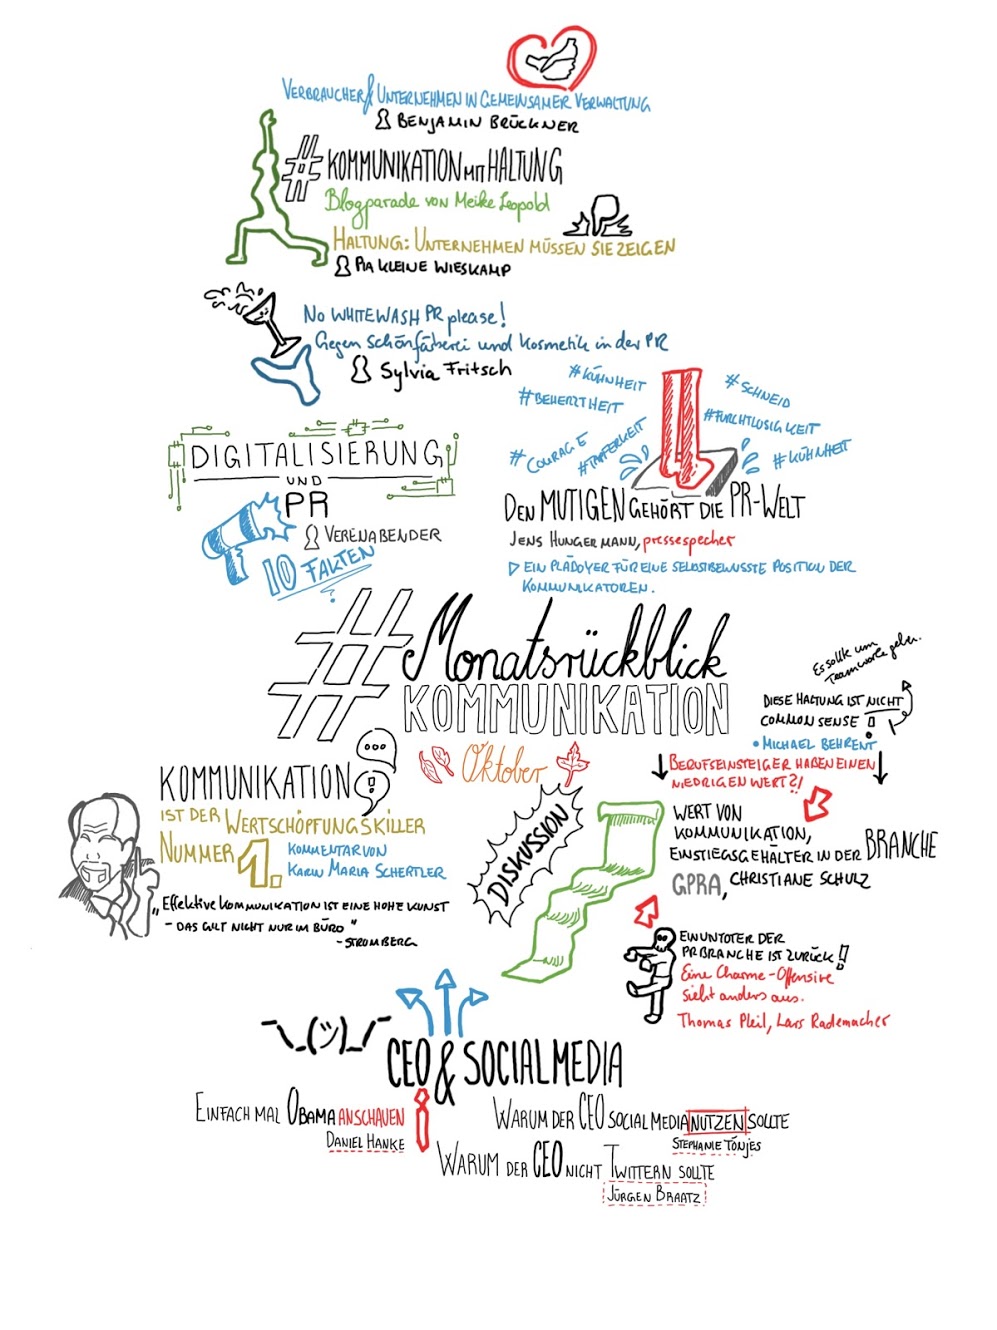 VERBRAUCHER & UNTERNEHMEN IN GEMEINSAMER VERWALTUNG
BENJAMIN BRÜCKNER
#KOMMUNIKATION MIT HALTUNG
Blogparade von Meike Leopold
HALTUNG: UNTERNEHMEN MÜSSEN SIE ZEIGEN
PIA KLEINE WIESKAMP
No WHITEWASH PR please!
Gegen Schönfärberei und Kosmetik in der PR
Sylvia Fritsch
#KÜHNHEIT
#SCHNEID
#BEHERZTHEIT
#FURCHTLOSIGKEIT
#COURAGE
#TAPFERKEIT
#KÜHNHEIT
DEN MUTIGEN GEHÖRT DIE PR-WELT
JENS HUNGERMANN, pressesprecher
EIN PLÄDOYER FÜR EINE SELBSTBEWUSSTE POSITION DER
KOMMUNIKATOREN.
DIGITALISIERUNG
UND
PR
VERENA BENDER
10 FAKTEN
?
#Monatsrückblick
KOMMUNIKATION
Oktober
KOMMUNIKATION
IST DER WERTSCHÖPFUNGSKILLER
NUMMER 1.
KOMMENTAR VON
KARIN MARIA SCHERTLER
„Effektive KOMMUNIKATION IST EINE HOHE KUNST
- DAS GILT NICHT NUR IM BÜRO"
- STROMBERG
DISKUSSION
Es sollte um
Teamwork gehen.
DIESE HALTUNG IST NICHT
COMMON SENSE!
• MICHAEL BEHRENT
BERUFSEINSTEIGER HABEN EINEN
NIEDRIGEN WERT?!
WERT VON
KOMMUNIKATION,
EINSTIEGSGEHÄLTER IN DER BRANCHE
GPRA, CHRISTIANE SCHULZ
EIN UNTOTER DER
PR BRANCHE IST ZURÜCK!
Eine Charme-Offensive
sieht anders aus.
Thomas Pleil, Lars Rademacher
¯\_(ツ)_/¯
CEO & SOCIAL MEDIA
EINFACH MAL OBAMA ANSCHAUEN
DANIEL HANKE
WARUM DER CEO SOCIAL MEDIA NUTZEN SOLLTE
STEPHANIE TÖNJES
WARUM DER CEO NICHT TWITTERN SOLLTE
JÜRGEN BRAATZ